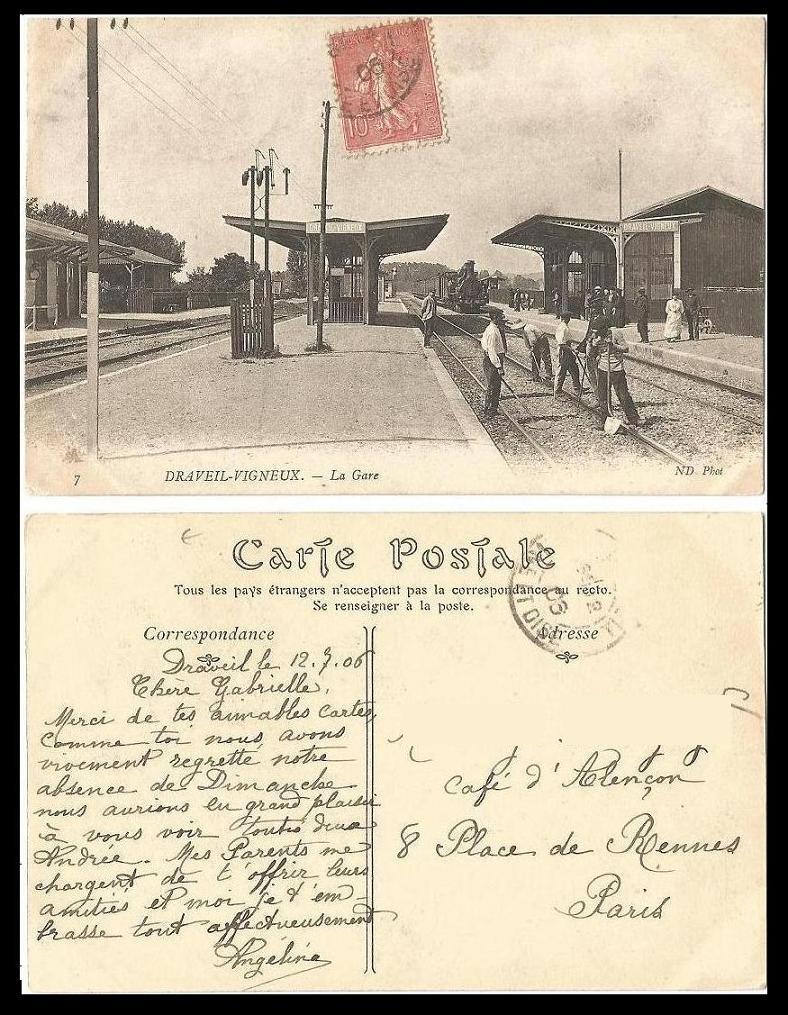 10
DRAVEIL-VIGNEUX
DRAVEIL-VIGNEUX
7 DRAVEIL-VIGNEUX. — La Gare
ND Phot
Carte Postale
Tous les pays étrangers n'acceptent pas la correspondance au recto.
Se renseigner à la poste.
Correspondance
Draveil le 12.7.06
Chère Gabrielle,
Merci de tes aimables cartes,
comme toi nous avons
vivement regretté notre
absence de Dimanche
nous aurions eu grand plaisir
à vous voir toutes deux
Andrée. Mes Parents me
chargent de t'offrir leurs
amitiés et moi je t'em-
brasse tout affectueusement
Angéline
Adresse
ET OISE
06
Café d'Alençon
8 Place de Rennes
Paris